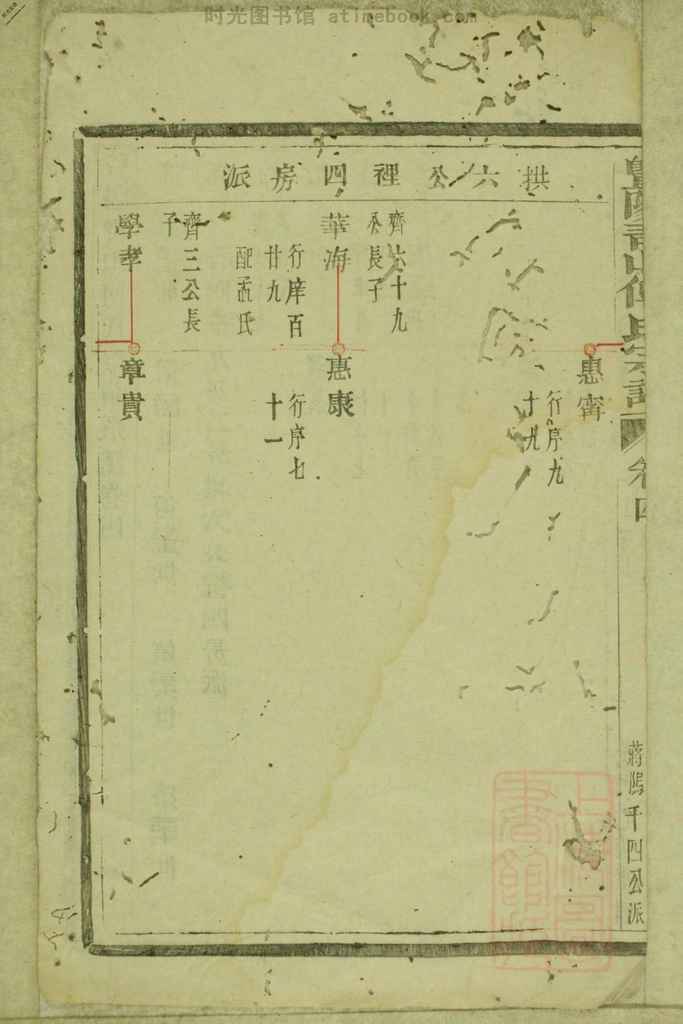 时光图书馆 atimebook.com
拱六公裡四房派
惠寗
行序九
十九
齊六十九
公長子
華海
行序百
廿九
配孟氏
惠康
行序七
十一
齊三公長
子
學孝
章貴
卷四
千四公派